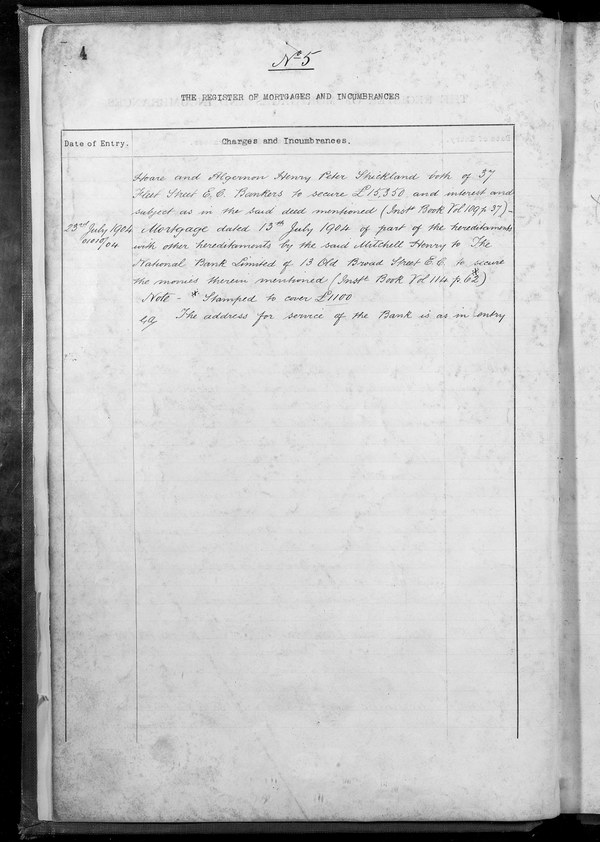 4
No 5
THE REGISTER OF MORTGAGES AND INCUMBRANCES
Date of Entry. Charges and Incumbrances.
Hoare and Algernon Henry Peter Strickland both of 37
Fleet Street E.C. Bankers to secure £15,350 and interest and
subject as in the said deed mentioned (Instt Book Vol 109 p 37) -
23rd July 1904 Mortgage dated 13th July 1904 of part of the hereditaments
01010/04 with other hereditaments by the said Mitchell Henry to The
National Bank Limited of 13 Old Broad Street E.C. to secure
the monies therein mentioned (Instt Book Vol 114 p 62*)
Note - * Stamped to cover £1100
The address for service of the Bank is as in entry